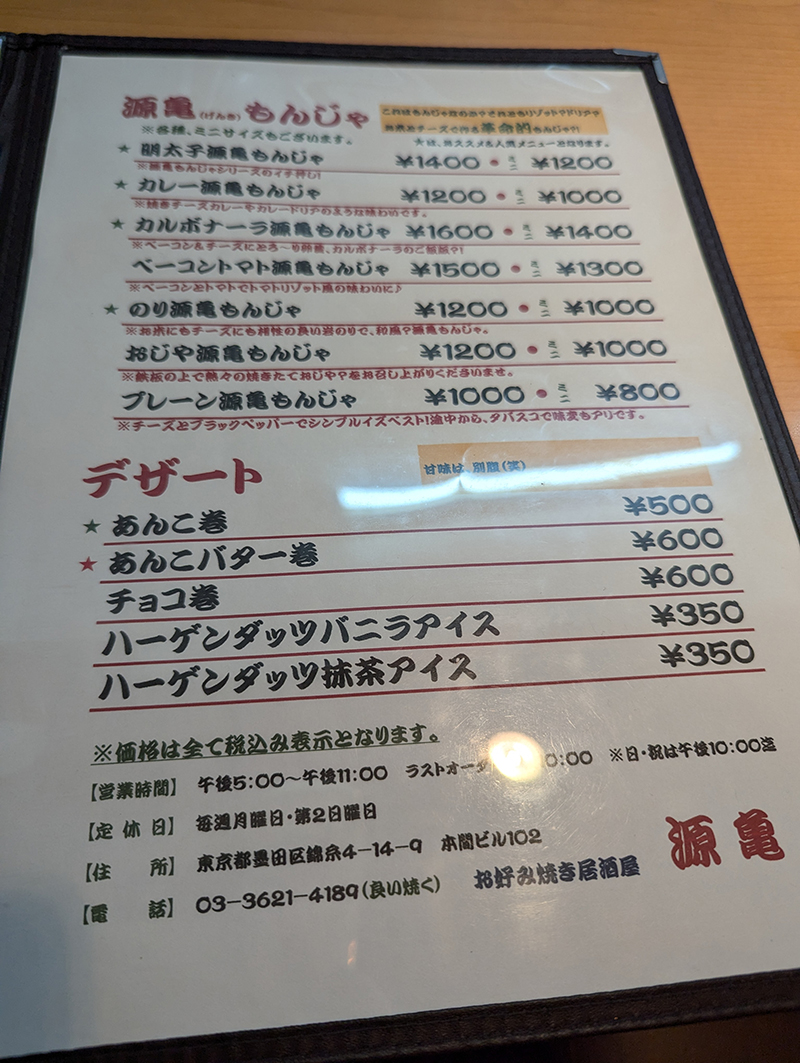 源亀(げんき)もんじゃ
これはもんじゃなのか?それともリゾット?ドリア?
お米とチーズで作る革命的もんじゃ?!
※各種、ミニサイズもございます。
★は、おススメ&人気メニューとなります。
★ 明太子源亀もんじゃ ¥1400 ● ミニ ¥1200
※源亀もんじゃシリーズのイチ押し!
★ カレー源亀もんじゃ ¥1200 ● ミニ ¥1000
※焼きチーズカレーやカレードリアのような味わいです。
★ カルボナーラ源亀もんじゃ ¥1600 ● ミニ ¥1400
※ベーコン&チーズにとろ〜り卵黄、カルボナーラのご飯版?!
ベーコントマト源亀もんじゃ ¥1500 ● ミニ ¥1300
※ベーコンとトマトでトマトリゾット風の味わいに♪
★ のり源亀もんじゃ ¥1200 ● ミニ ¥1000
※お米にもチーズにも相性の良い岩のりで、和風?源亀もんじゃ。
おじや源亀もんじゃ ¥1200 ● ミニ ¥1000
※鉄板の上で熱々の焼きたておじや?をお召し上がりくださいませ。
プレーン源亀もんじゃ ¥1000 ● ミニ ¥800
※チーズとブラックペッパーでシンプルイズベスト!途中から、タバスコで味変もアリです。
デザート
甘味は、別腹(笑)
★ あんこ巻 ¥500
★ あんこバター巻 ¥600
チョコ巻 ¥600
ハーゲンダッツバニラアイス ¥350
ハーゲンダッツ抹茶アイス ¥350
※価格は全て税込み表示となります。
【営業時間】 午後5:00〜午後11:00 ラストオーダ 0:00 ※日・祝は午後10:00迄
【定休日】 毎週月曜日・第2日曜日
【住所】 東京都墨田区錦糸4-14-9 本間ビル102
【電話】 03-3621-4189(良い焼く)
お好み焼き居酒屋 源亀